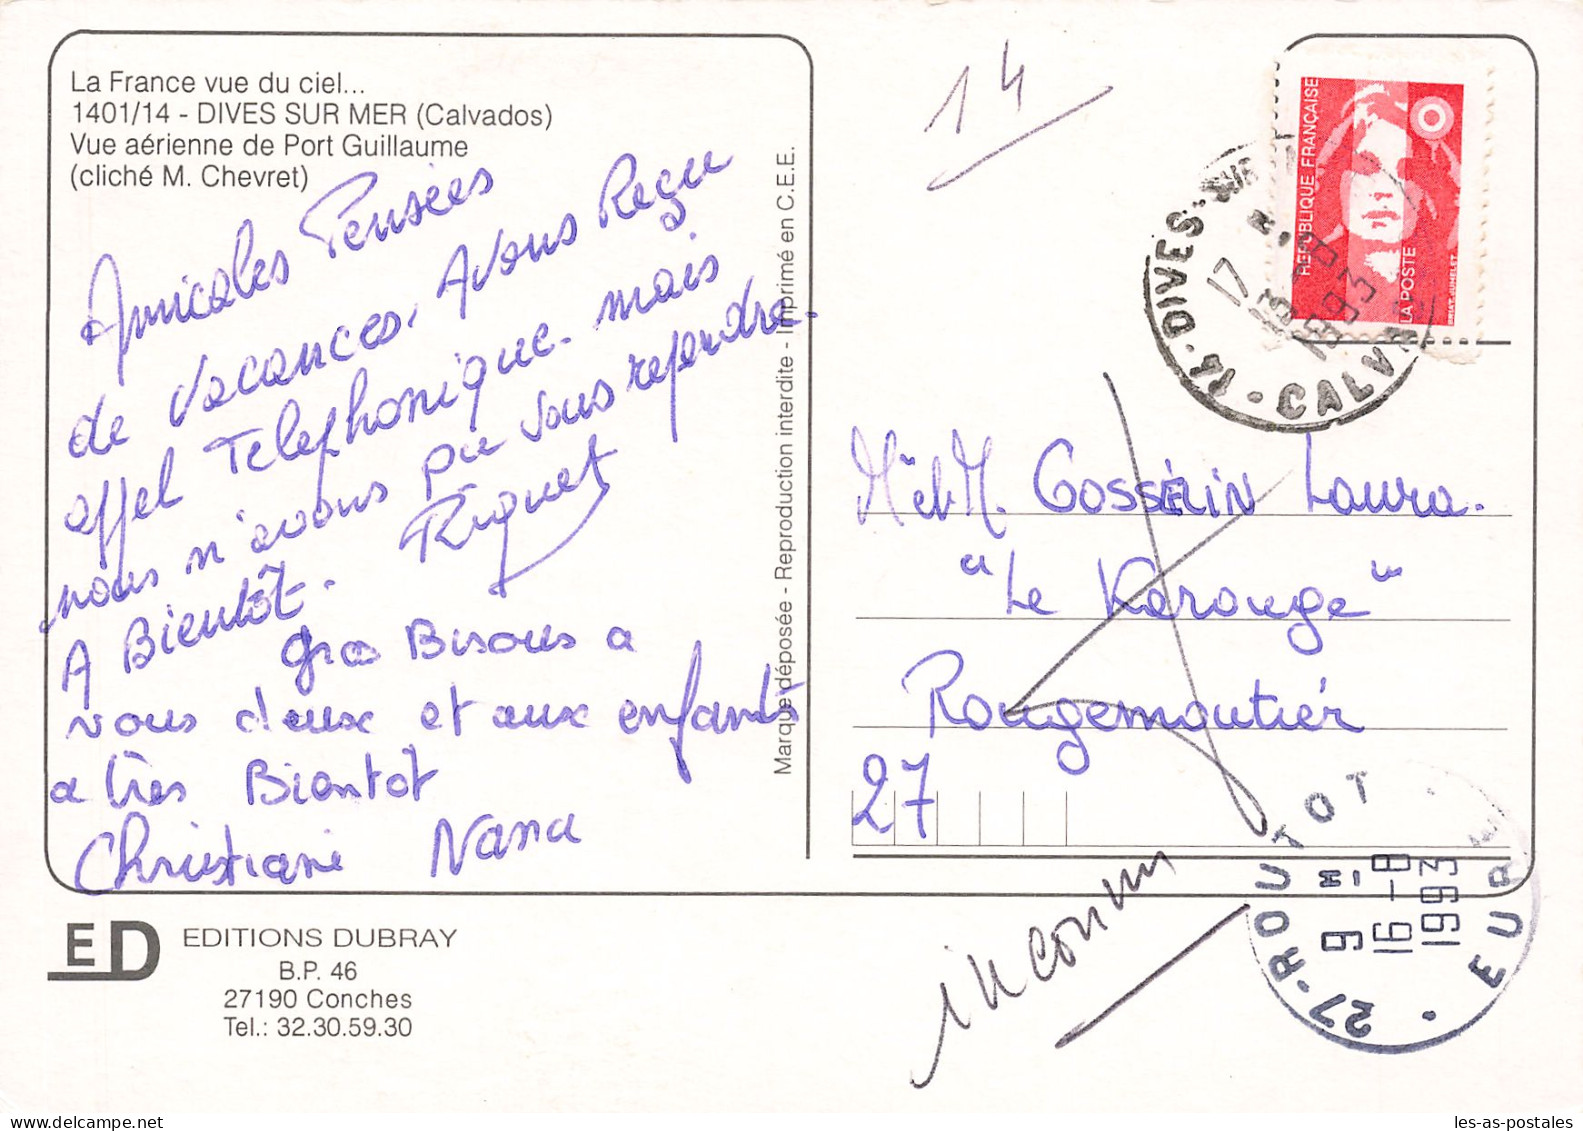 La France vue du ciel...
1401/14 - DIVES SUR MER (Calvados)
Vue aérienne de Port Guillaume
(cliché M. Chevret)
Amicales Pensées
de Vacances. Avons Reçu
appel Telephonique. mais
nous n'avons pu vous rependre.
A Bientôt. Riquet
gros Bisous a
vous deux et aux enfants
a très Biantot
Christiane Nana
ED
EDITIONS DUBRAY
B.P. 46
27190 Conches
Tel.: 32.30.59.30
Marque déposée - Reproduction interdite - Imprimé en C.E.E.
14
RÉPUBLIQUE FRANÇAISE
LA POSTE
BRIAT.JUMELET.
14-DIVES-SUR
17
1993
CALV
M et M. GOSSELIN Laura.
"Le Karouge"
Rougemoutier
27
inconnu
27-ROUTOT
9 M
16-8
1993
EURE
les-as-postales